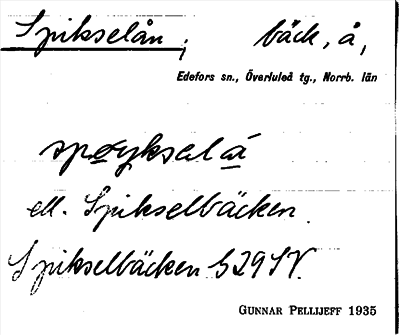 Spikselån, bäck, å,
Edefors sn., Överluleå tg., Norrb. län
spøyksalá
ell. Spikselbäcken.
Spikselbäcken 529SV.
GUNNAR PELLIJEFF 1935